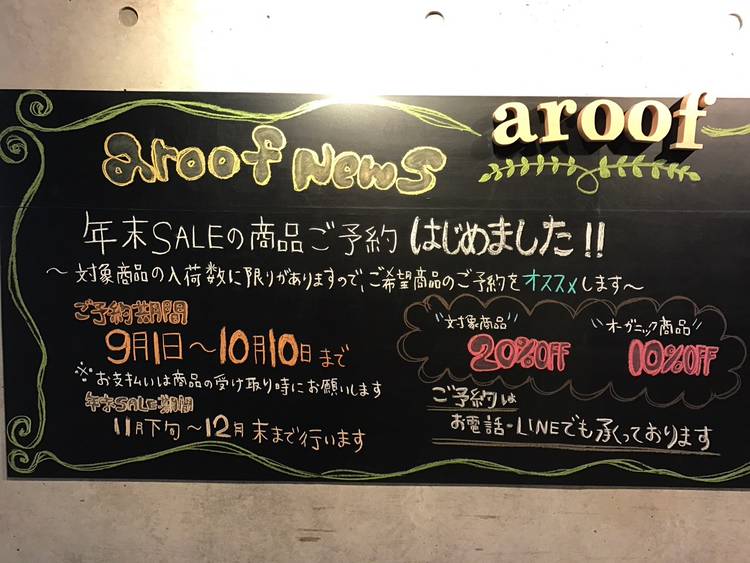 aroof
aroof News
年末SALEの商品ご予約 はじめました!!
～対象商品の入荷数に限りがありますので、ご希望商品のご予約をオススメします～
ご予約期間
9月1日～10月10日まで
※お支払いは商品の受け取り時にお願いします
年末SALE期間
11月下旬～12月末まで行います
"対象商品"
20%OFF
"オーガニック商品"
10%OFF
ご予約は
お電話-LINEでも承っております